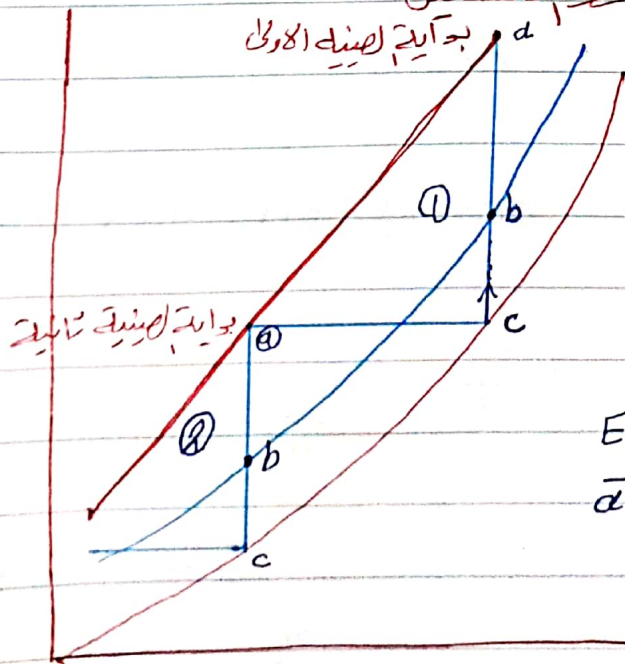 بداية الصينية الاولى
d
①
b
c
بداية الصينية ثانية
a
②
b
c
E
d